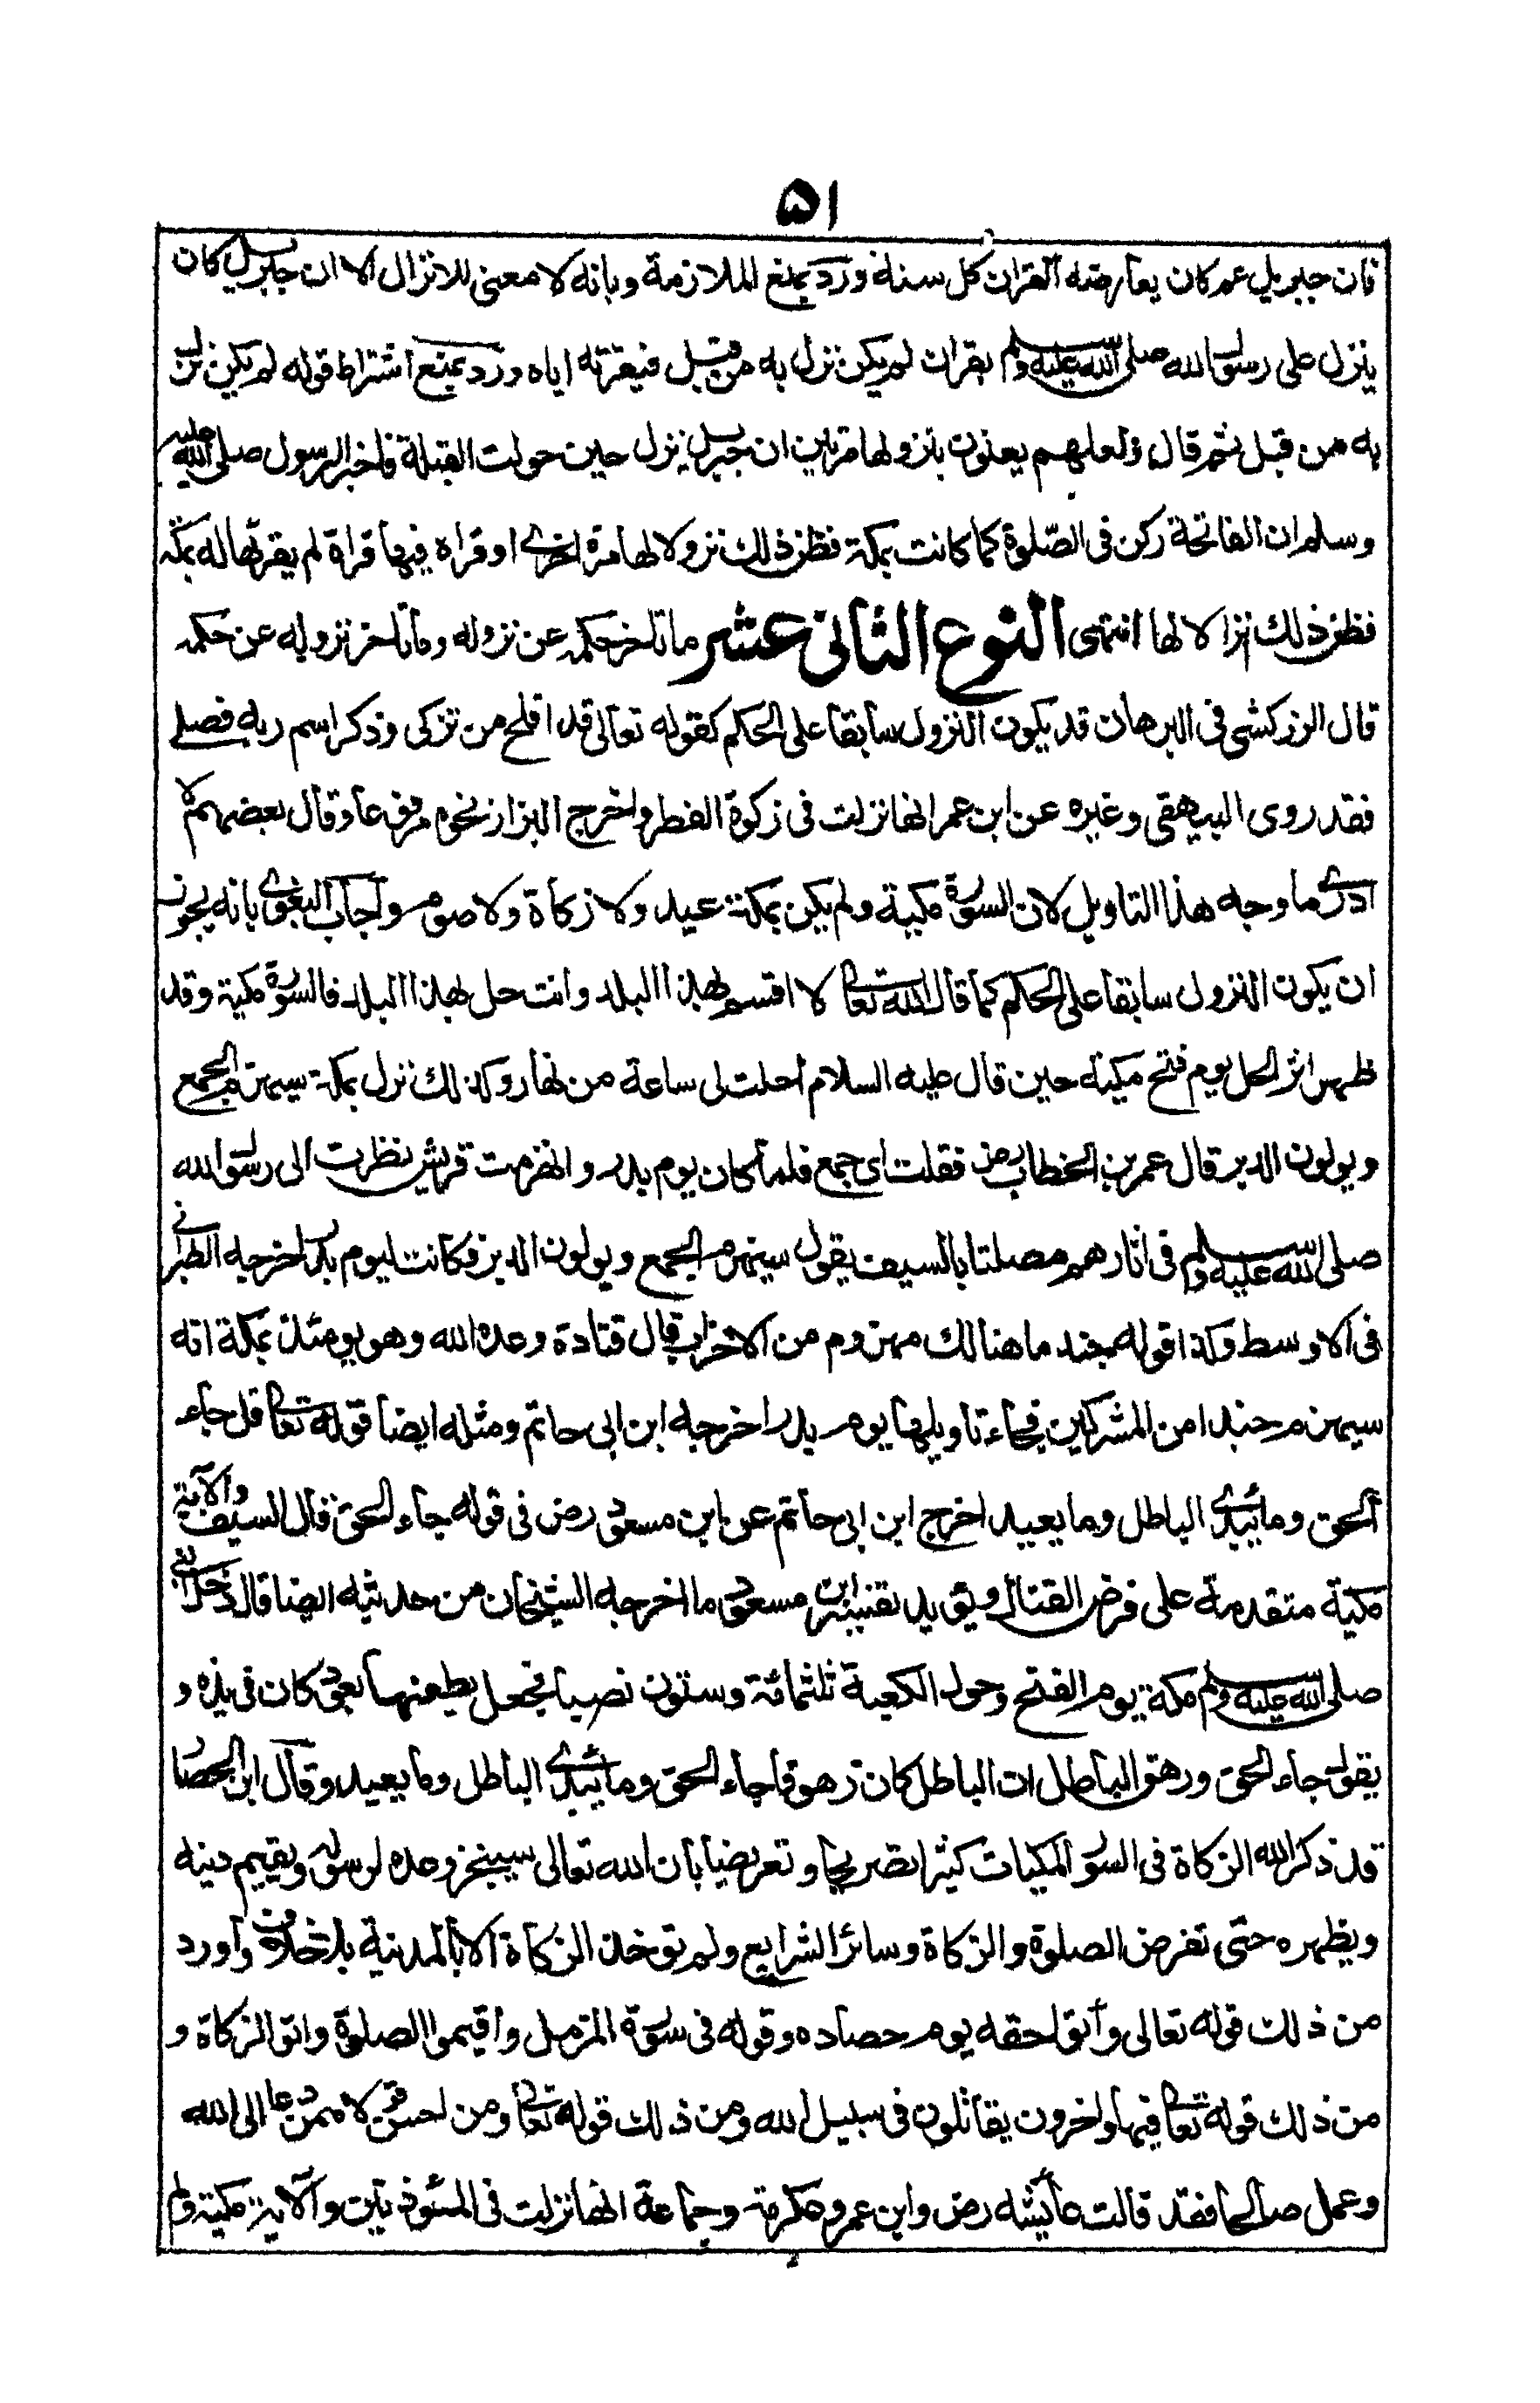 ۵۱
فان جبريل عم كان يعارضه القران كل سنة ورد بمنع الملازمة وبانه لا معنى للانزال الا ان جبريل كان
ينزل على رسول الله صلى الله عليه وسلم بقران لم يكن نزل به من قبل فيقرئه اياه ورد بمنع اشتراط قوله لم يكن نزل
به من قبل ثم قال ولعلهم يعنون بنزولها مرتين ان جبريل نزل حين حولت القبلة فاخبر الرسول صلى الله عليه
وسلم ان الفاتحة ركن فى الصلوة كما كانت بمكة فظن ذلك نزولا لها مرة اخرى او قراه فيها قراة لم يقرئها له بمكة
فظن ذلك انزالا لها انتهى النوع الثانى عشر ما تاخر حكمه عن نزوله وما تاخر نزوله عن حكمه
قال الزركشى فى البرهان قد يكون النزول سابقا على الحكم كقوله تعالى قد افلح من تزكى وذكر اسم ربه فصلى
فقد روى البيهقى وغيره عن ابن عمر انها نزلت فى زكوة الفطر واخرج البزار نحوه مرفوعا وقال بعضهم لا
ادرى ما وجه هذا التاويل لان السورة مكية ولم يكن بمكة عيد ولا زكاة ولا صوم واجاب البغوى بانه يجوز
ان يكون النزول سابقا على الحكم كما قال الله تعالى لا اقسم بهذا البلد وانت حل بهذا البلد فالسورة مكية وقد
ظهر اثر الحل يوم فتح مكية حين قال عليه السلام احلت لى ساعة من نهار وكذلك نزل بمكة سيهزم الجمع
ويولون الدبر قال عمر بن الخطاب رض فقلت اى جمع فلما كان يوم بدر وانهزمت قريش نظرت الى رسول الله
صلى الله عليه وسلم فى اثارهم مصلتا بالسيف يقول سيهزم الجمع ويولون الدبر فكانت ليوم بدر اخرجه الطبرانى
فى الاوسط وكذا قوله جند ما هنالك مهزوم من الاحزاب قال قتادة وعده الله وهو يومئذ بمكة انه
سيهزم جندا من المشركين فجاء تاويلها يوم بدر اخرجه ابن ابى حاتم ومثله ايضا قوله تعالى قل جاء
الحق وما يبدئ الباطل وما يعيد اخرج ابن ابى حاتم عن ابن مسعود رض فى قوله جاء الحق قال السيف والآية
مكية متقدمة على فرض القتال ويؤيد تفسير ابن مسعود ما اخرجه الشيخان من حديثه ايضا قال دخل النبى
صلى الله عليه وسلم مكة يوم الفتح وحول الكعبة ثلثمائة وستون نصبا فجعل يطعنها بعود كان فى يده و
يقول جاء الحق وزهق الباطل ان الباطل كان زهوقا جاء الحق وما يبدئ الباطل وما يعيد وقال ابن الحصار
قد ذكر الله الزكاة فى السور المكيات كثيرا تصريحا وتعريضا بان الله تعالى سينجز وعده لرسوله ويقيم دينه
ويظهره حتى تفرض الصلوة والزكاة وسائر الشرايع ولم توخذ الزكاة الا بالمدينة بلا خلاف واورد
من ذلك قوله تعالى وآتوا حقه يوم حصاده وقوله فى سورة المزمل واقيموا الصلوة واتو الزكاة و
من ذلك قوله تعالى فيها واخرون يقاتلون فى سبيل الله ومن ذلك قوله تعالى ومن احسن قولا ممن دعا الى الله
وعمل صالحا فقد قالت عايشه رض وابن عمر وعكرمة وجماعة انها نزلت فى المئوذنين والآية مكية ولم